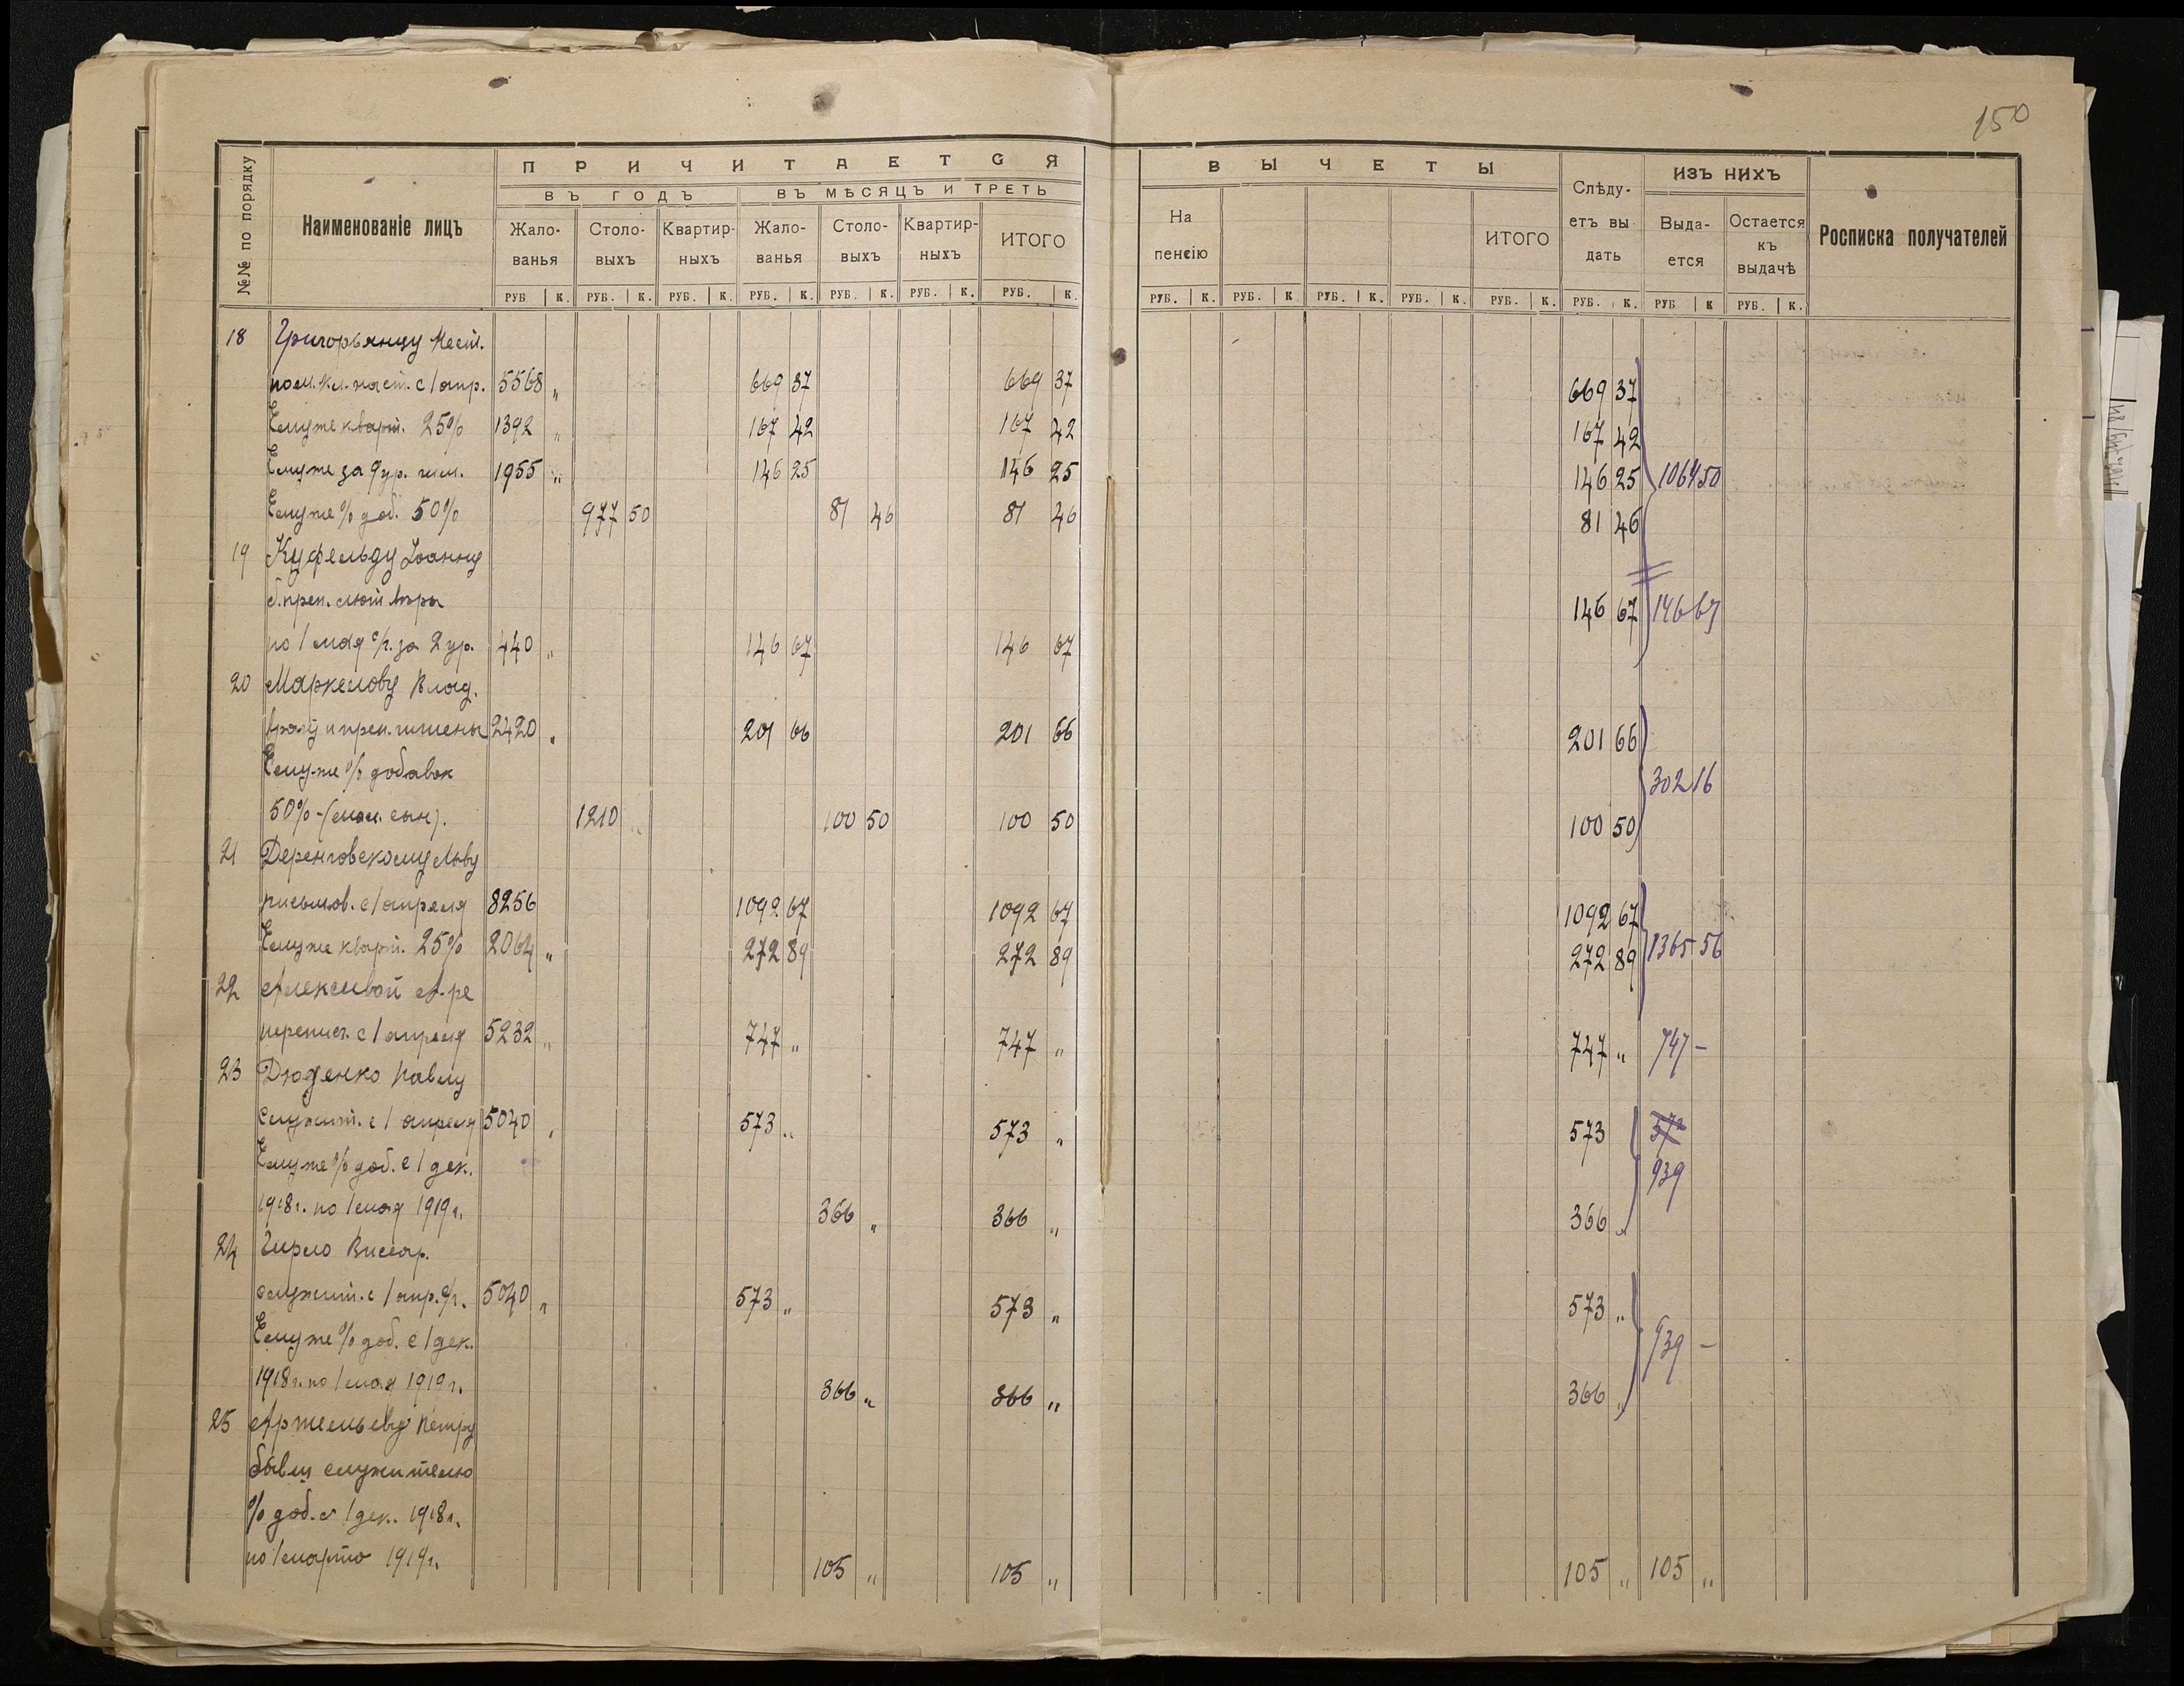 150
№№ по порядку
Наименованіе лицъ
ПРИЧИТАЕТСЯ
ВЪ ГОДЪ
ВЪ МѢСЯЦЪ И ТРЕТЬ
Жало-ванья
Столо-выхъ
Квартир-ныхъ
Жало-ванья
Столо-выхъ
Квартир-ныхъ
ИТОГО
ВЫЧЕТЫ
На пенсію
ИТОГО
Слѣду-етъ вы дать
ИЗЪ НИХЪ
Выда-ется
Остается къ выдачѣ
Росписка получателей
РУБ. К. РУБ. К. РУБ. К. РУБ. К. РУБ. К. РУБ. К. РУБ. К.
РУБ. К. РУБ. К. РУБ. К. РУБ. К. РУБ. К. РУБ. К. РУБ. К. РУБ. К.
18 Григорьянцу
пом. кл. наст. с 1 апр. 5568 „ 669 37 669 37 669 37
Ему же кварт. 25% 1392 „ 167 42 167 42 167 42
Ему же за 9 ур. 1955 „ 146 25 146 25 146 25 1064 50
Ему же % доб. 50% 977 50 81 46 81 46 81 46
19 Куфельду Іоанну
146 67 146 67
по 1 мая с/г. за 2 ур. 440 „ 146 67 146 67
20 Маркелову Влад.
врачу и преп. гигиены 2420 „ 201 66 201 66 201 66
Ему-же % добавок 302 16
50% 1210 „ 100 50 100 50 100 50
21 Деренговскому Льву
письмов. с 1 апреля 8256 1092 67 1092 67 1092 67
Ему же кварт. 25% 2064 „ 272 89 272 89 272 89 1365 56
22
переписч. с 1 апреля 5232 „ 747 „ 747 „ 747 „ 747 —
23 Дюденко Павлу
служит. с 1 апреля 5040 „ 573 „ 573 „ 573
Ему же % доб. с 1 дек. 939
1918 г. по 1 мая 1919 г. 366 „ 366 „ 366 „
24 Гирло Виссар.
служит. с 1 апр. с/г. 5040 „ 573 „ 573 „ 573 „
Ему же % доб. с 1 дек. 939 —
1918 г. по 1 мая 1919 г. 366 „ 366 „ 366 „
25 Петру
бывш служителю
% доб. с 1 дек. 1918 г.
по 1 марта 1919 г. 105 „ 105 „ 105 „ 105 „